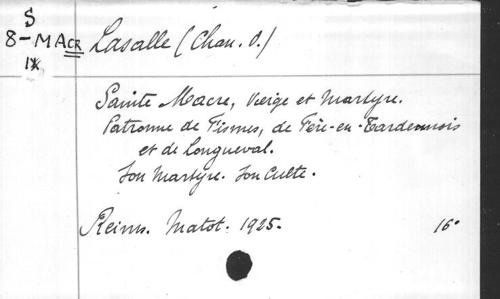 S
8-MACR
IX
Lasalle (Chan. O.)
Sainte Macre, Vierge et Martyre.
Patronne de Fismes, de Fère-en-Tardenois
et de Longueval.
Son Martyre. Son Culte.
Reims. Matot. 1925.
16°